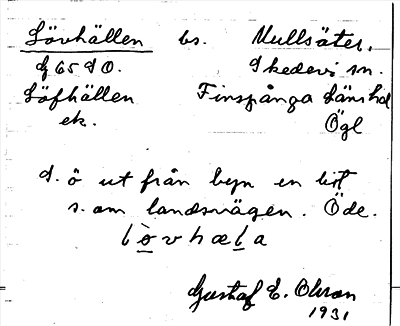 Lövhällen bs. Mullsäter.
G 65 d O. Skedevi sn.
Löfhällen Finspånga läns hd
ek. Ögl
d. ö ut från byn en bit
s. om landsvägen. Öde.
lòvhæla
Gustaf E. Olsson
1931